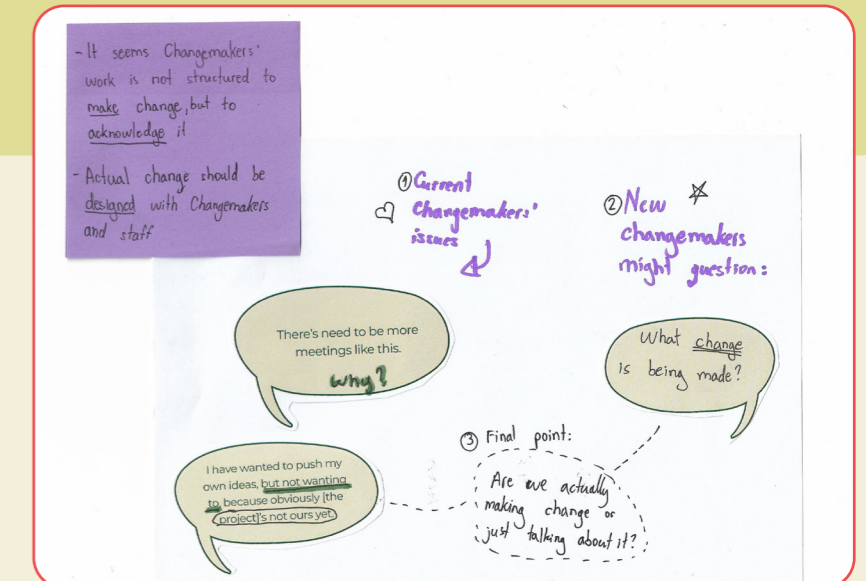 - It seems Changemakers'
work is not structured to
make change, but to
acknowledge it
- Actual change should be
designed with Changemakers
and staff
① Current
Changemakers'
issues
② New
changemakers
might question:
There's need to be more
meetings like this.
Why?
What change
is being made?
I have wanted to push my
own ideas, but not wanting
to, because obviously [the
project]'s not ours yet.
③ Final point:
Are we actually
making change or
just talking about it?